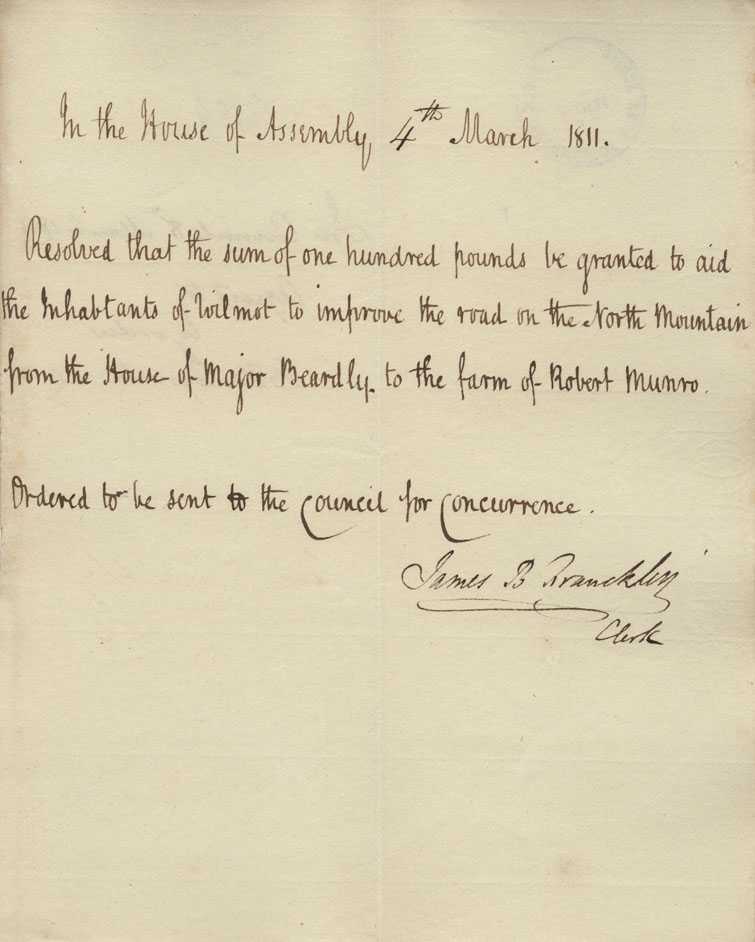 In the House of Assembly, 4th March 1811.
Resolved that the sum of one hundred pounds be granted to aid
the Inhabtants of Wilmot to improve the road on the North Mountain
from the House of Major Beardly to the farm of Robert Munro.
Ordered to be sent to the Council for Concurrence.
James B Franckling
Clerk